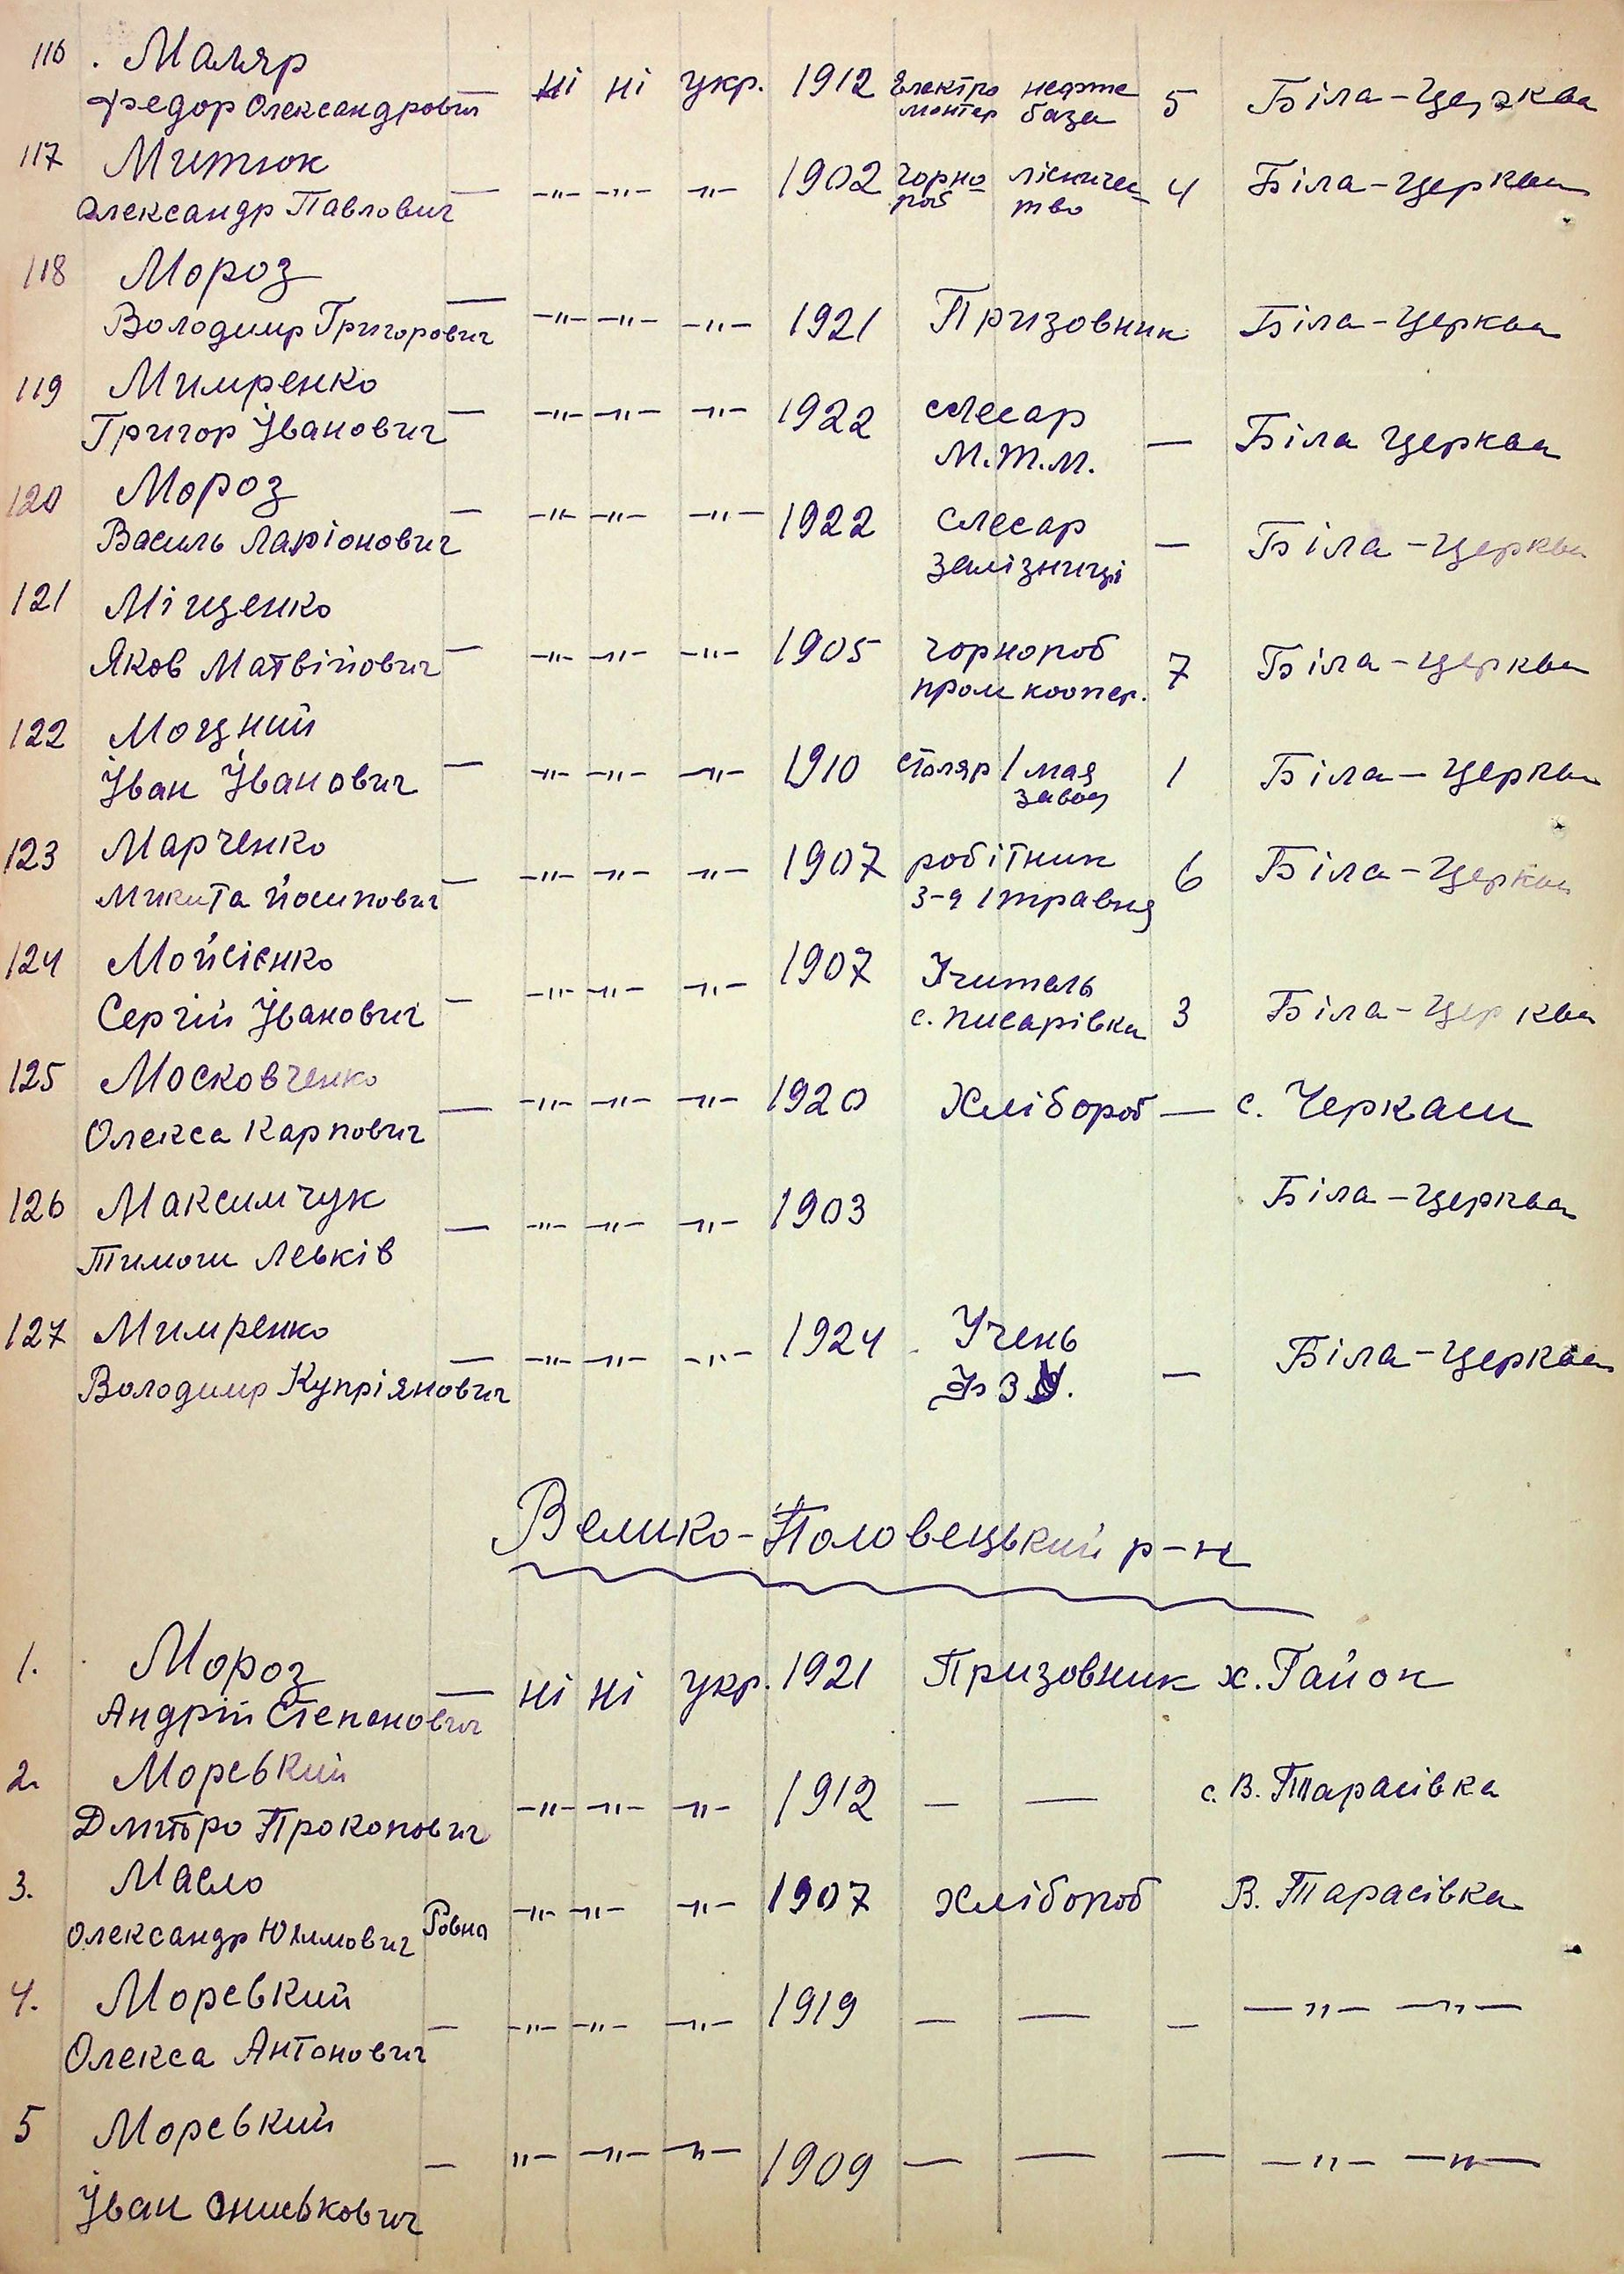 116 . Маляр
Федор Олександрович — ні ні укр. 1912 Електро монтер нафте база 5 Біла-Церква
117 Митюк
Олександр Павлович — -"- -"- -"- 1902 Чорно роб лісничес тво 4 Біла-Церква
118 Мороз
Володимир Григорович — -"- -"- -"- 1921 Призовник Біла-Церква
119 Мимренко
Григор Іванович — -"- -"- -"- 1922 слесар М.Т.М. — Біла Церква
120 Мороз
Василь Ларіонович — -"- -"- -"- 1922 Слесар залізниці — Біла-Церква
121 Міщенко
Яков Матвійович — -"- -"- -"- 1905 чорнороб пром коопер. 7 Біла-Церква
122 Моцний
Іван Іванович — -"- -"- -"- 1910 столяр 1 мая завод 1 Біла-Церква
123 Марченко
Микита Йосипович — -"- -"- -"- 1907 робітник з-д 1 травня 6 Біла-Церква
124 Мойсієнко
Сергій Іванович — -"- -"- -"- 1907 Учитель с. Писарівка 3 Біла-Церква
125 Московченко
Олекса Карпович — -"- -"- -"- 1920 Хлібороб — с. Черкаси
126 Максимчук
Тимош Левків — -"- -"- -"- 1903 Біла-Церква
127 Мимренко
Володимир Купріянович — -"- -"- -"- 1924 Учень ФЗУ. — Біла-Церква
Велико-Половецький р-н
1. Мороз
Андрій Степанович — ні ні укр. 1921 Призовник х. Гайок
2. Морський
Дмитро Прокопович -"- -"- -"- 1912 — — с. В. Тарасівка
3. Масло
Олександр Юхимович Ровно -"- -"- -"- 1907 хлібороб В. Тарасівка
4. Морський
Олекса Антонович — -"- -"- -"- 1919 — — — -"- -"-
5 Морський
ІванОниськович — -"- -"- -"- 1909 — — — -"- -"-